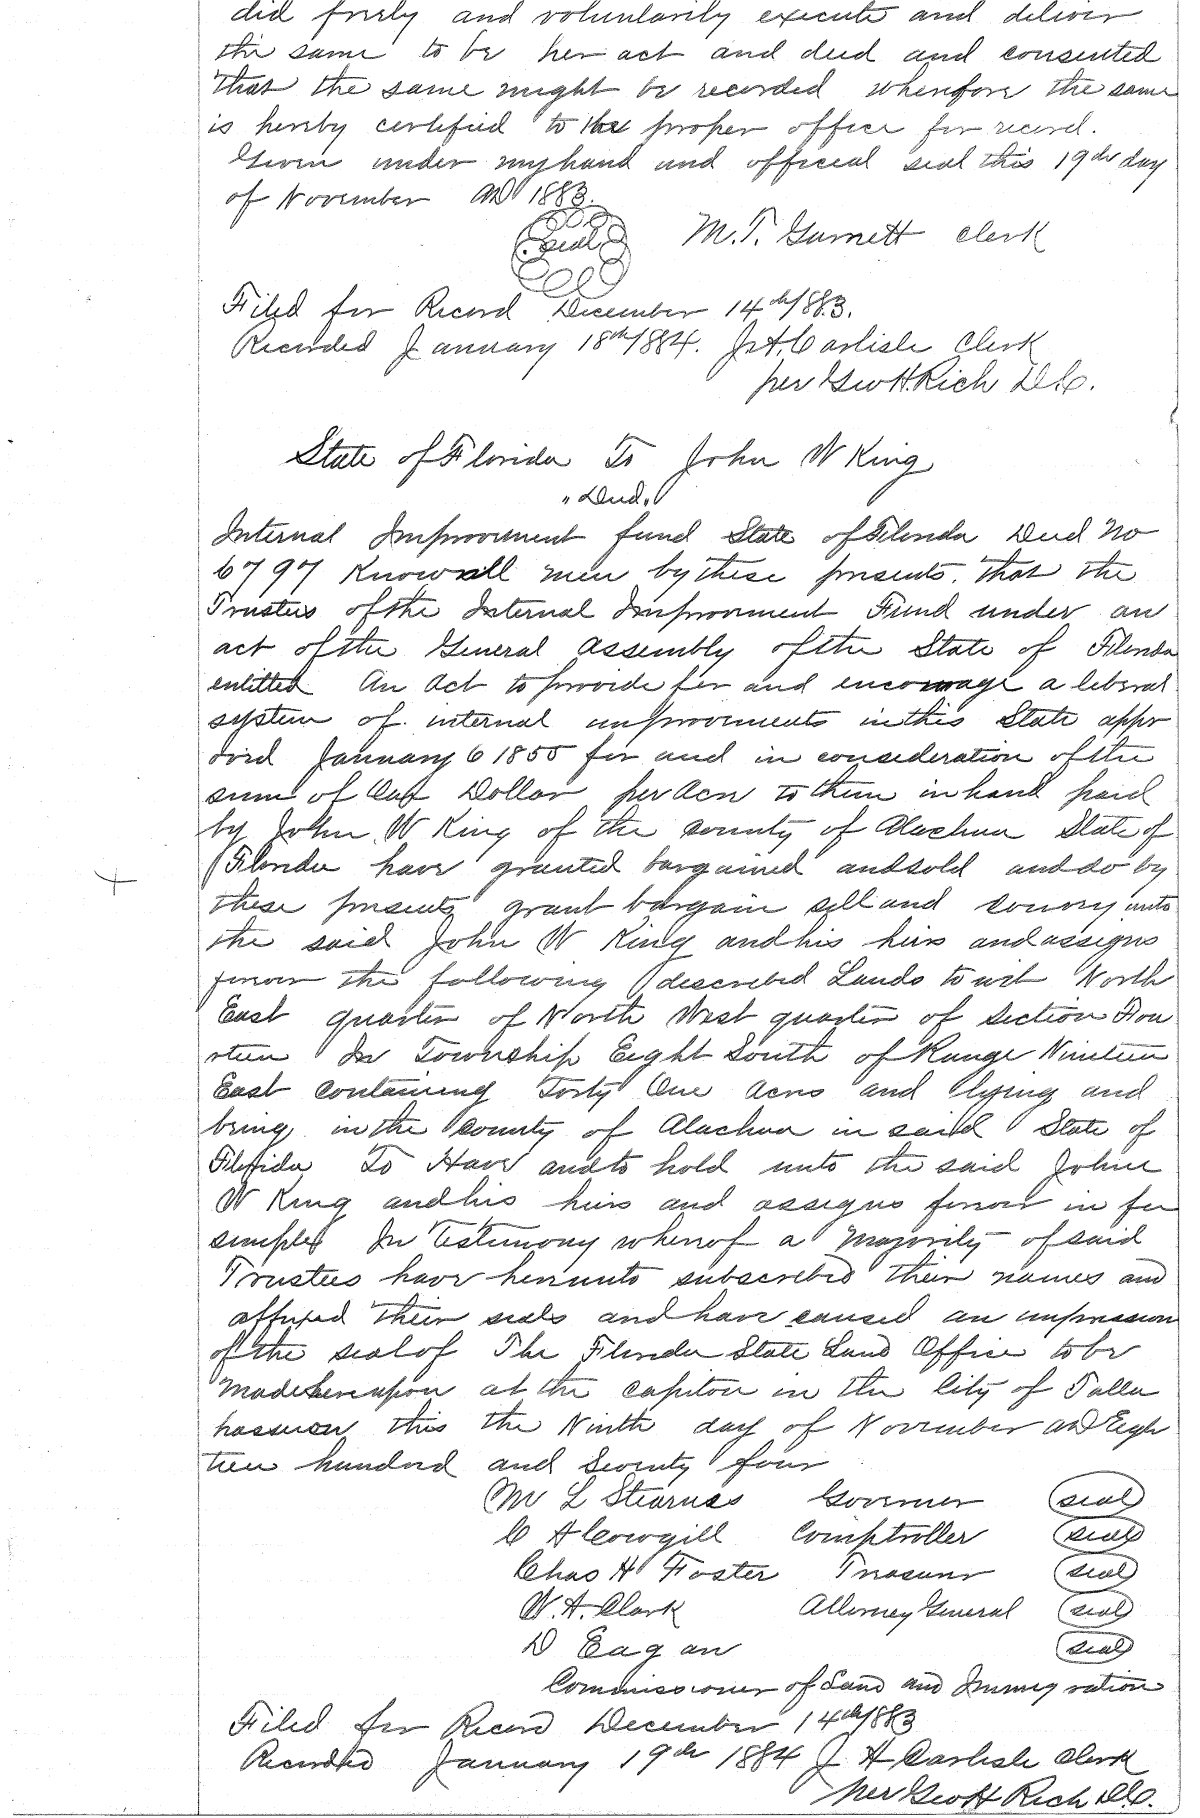 did freely and voluntarily execute and deliver
the same to be her act and deed and consented
that the same might be recorded wherefore the same
is hereby certified to the proper office for record.
Given under my hand and official seal this 19th day
of November AD 1883.
seal M.T. Garnett Clerk
Filed for Record December 14th/883.
Recorded January 18th/884. J.A. Carlisle Clerk
per Geo H. Rich D.C.
State of Florida To John W King
"Deed"
Internal Improvement fund State of Florida Deed No
6797 Know all men by these presents. that the
Trustees of the Internal Improvement Fund under an
act of the General Assembly of the State of Florida
entitled An Act to provide for and encourage a liberal
system of internal improvements in this State appr
oved January 6 1855 for and in consideration of the
sum of One Dollar per Acre to them in hand paid
by John W King of the county of Alachua State of
Florida have granted bargained and sold and do by
these presents grant bargain sell and convey unto
the said John W King and his heirs and assigns
forever the following described Lands to wit North
East quarter of North West quarter of section Fou
rteen In Township Eight South of Range Nineteen
East containing Forty One acres and lying and
being in the county of Alachua in said State of
Florida To Have and to hold unto the said John
W King and his heirs and assigns forever in fee
simple In Testimony whereof a Majority of said
Trustees have hereunto subscribed their names and
affixed their seals and have caused an impression
of the seal of The Florida State Land Office to be
made hereupon at the capitol in the City of Talla
hassee on this the Ninth day of November AD Eigh
teen hundred and Seventy four
M L Stearns Governor seal
C A Cowgill Comptroller seal
Chas H Foster Treasurer seal
W.A. Clark Attorney General seal
D Eagan seal
Commissioner of Land and Immigration
Filed for Record December 14th/883
Recorded January 19th 1884 J A Carlisle Clerk
per Geo H Rich D.C.